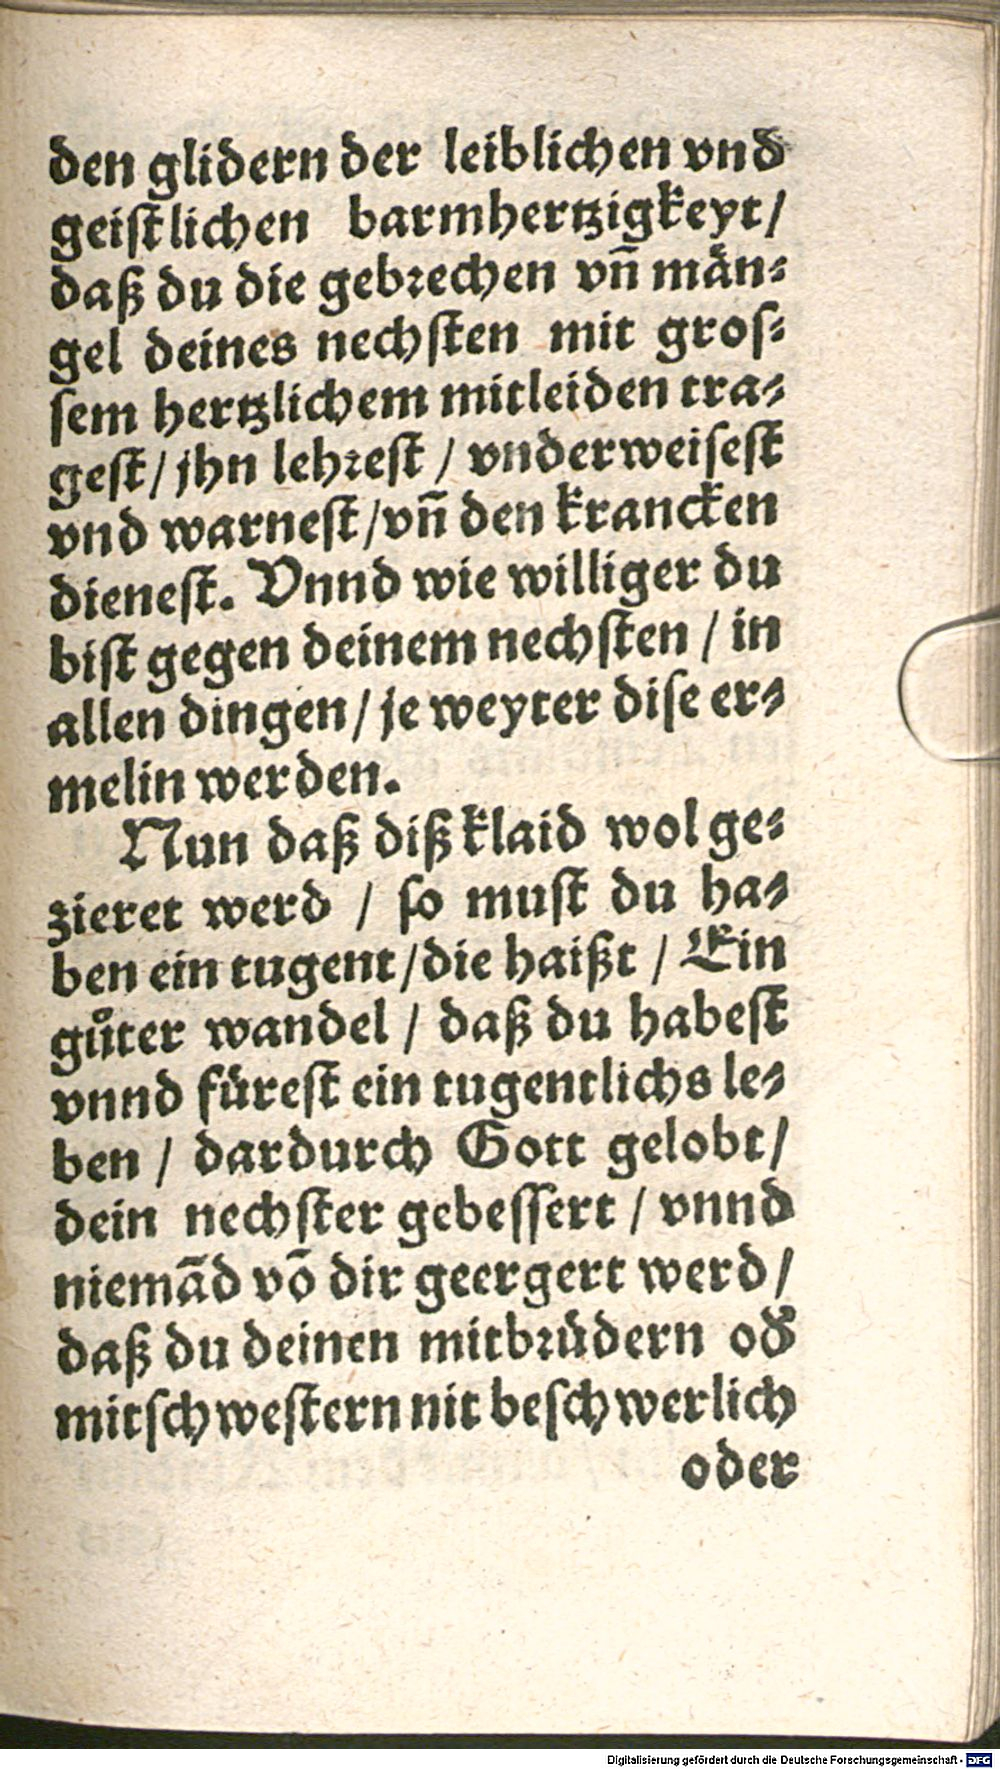 den glidern der leiblichen vnd
geistlichen barmhertzigkeyt/
daß du die gebrechen vn̄ män⸗
gel deines nechsten mit gros⸗
sem hertzlichem mitleiden tra⸗
gest/ jhn lehrest / vnderweisest
vnd warnest/vn̄ den krancken
dienest. Vnnd wie williger du
bist gegen deinem nechsten / in
allen dingen/ je weyter dise er⸗
melin werden.
Nun daß diß klaid wol ge⸗
zieret werd / so must du ha⸗
ben ein tugent/die haißt / Ein
gůter wandel / daß du habest
vnnd fürest ein tugentlichs le⸗
ben / dardurch Gott gelobt/
dein nechster gebessert / vnnd
niemād vō dir geergert werd/
daß du deinen mitbrüdern od̕
mitschwestern nit beschwerlich
oder
Digitalisierung gefördert durch die Deutsche Forschungsgemeinschaft - DFG